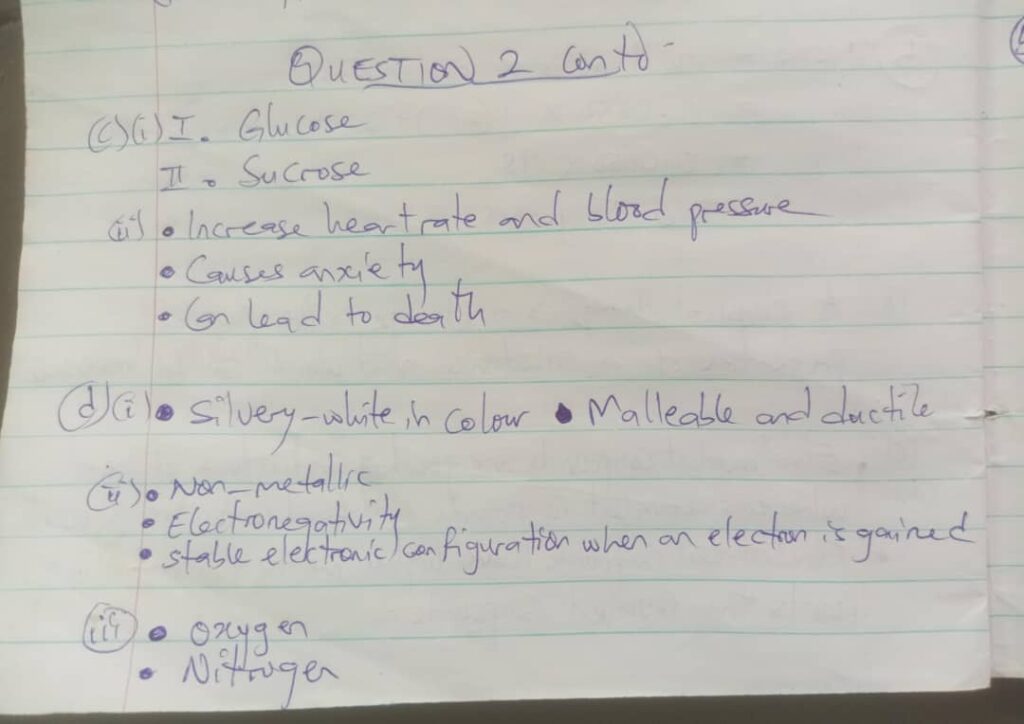 QUESTION 2 Contd-
(c)(i) I. Glucose
II. Sucrose
(ii) • Increase heart rate and blood pressure
• Causes anxiety
• Can lead to death
(d)(i) • Silvery-white in colour • Malleable and ductile
(ii) • Non-metallic
• Electronegativity
• stable elektronic configuration when an electron is gained
(iii) • Oxygen
• Nitrogen